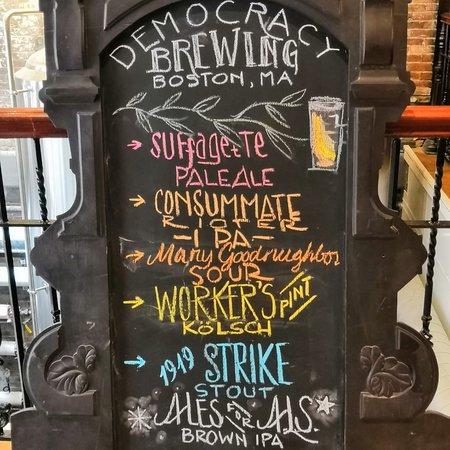 DEMOCRACY
BREWING
BOSTON, MA
→ SUFFAGETTE
PALE ALE
→ CONSUMMATE
RIOTER
- IPA -
→ Mary Goodneighbor
SOUR
→ WORKER'S PINT
KÖLSCH
→ 1919 STRIKE
STOUT
ALES FOR ALS.
BROWN IPA